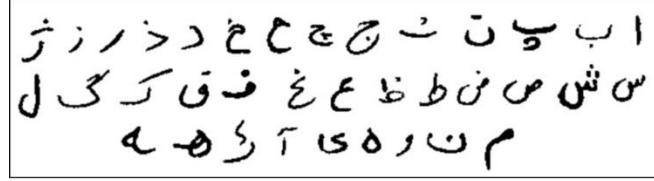 ا ب پ ت ث ج چ ح خ د ذ ر ز ژ
س ش ص ض ط ظ ع غ ف ق ک گ ل
م ن و ه ی آ ـهـ ـه